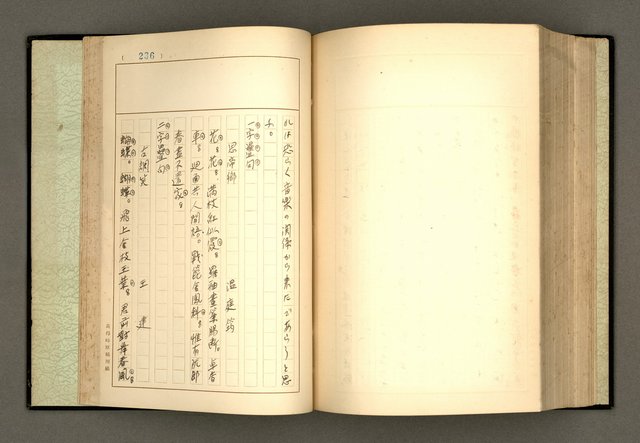 ( 236 )
れは恐らく音楽の関係から来たであらうと思
ふ。
一字疊句
思帝鄉 温庭筠
花。花。滿枝紅似霞。羅袖畫簾腸斷。卓香
車。迴面共人閒語。戰篦金鳳斜。惟有阮郎
春盡不還家。
二字疊句
古調笑 王建
蝴蝶。蝴蝶。飛上金枝玉葉。君前對舞春風